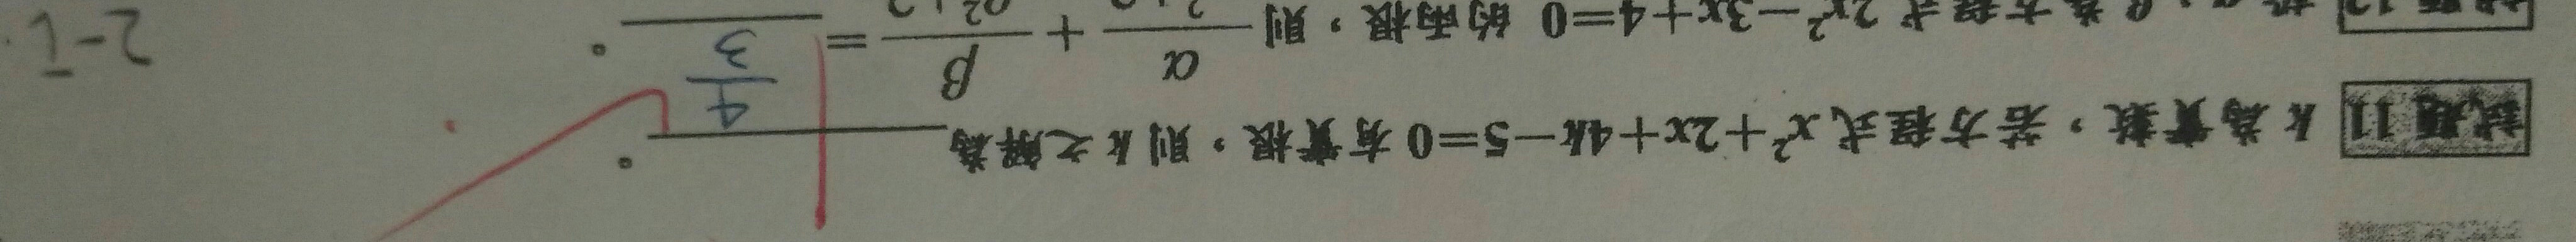 試題 11 k 為實數,若方程式 x²+2x+4k−5=0 有實根,則 k 之解為 。
為方程式 2x²−3x+4=0 的兩根,則 α + β = 4/3 。
2-1